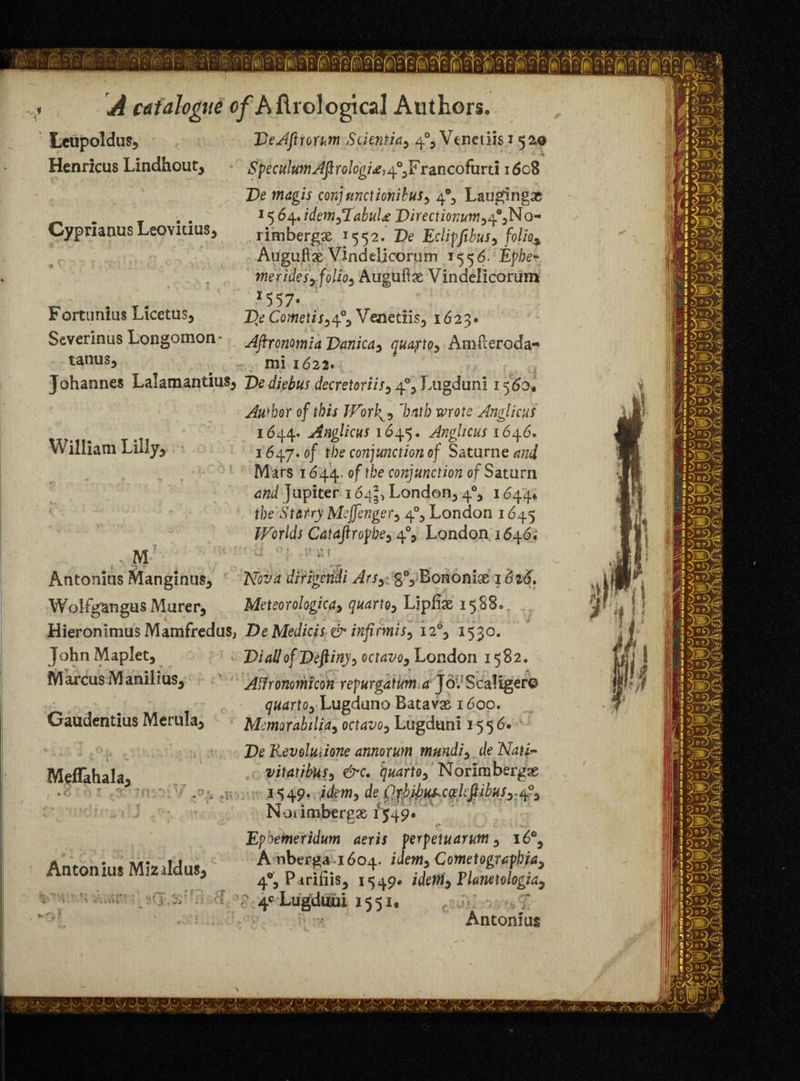 A catalogue of Aſtrological Authors.
Leupoldus, De Aſtrorum Scientia, 4°, Venetiis 1520
Henricus Lindhout, Speculum Aſtrologiæ, 4°, Francofurti 1608
De magis conjunctionibus, 4°, Laugingæ
Cyprianus Leovitius, 1564. idem, Tabulæ Directionum, 4°, No-
rimbergæ 1552. De Eclipſibus, folio,
Auguſtæ Vindelicorum 1556. Ephe-
merides, folio, Auguſtæ Vindelicorum
1557.
Fortunius Licetus, De Cometis, 4°, Venetiis, 1623.
Severinus Longomon- Aſtronomia Danica, quarto, Amſteroda-
tanus, mi 1622.
Johannes Lalamantius, De diebus decretoriis, 4°, Lugduni 1560.
Author of this Work, hath wrote Anglicus
1644. Anglicus 1645. Anglicus 1646.
William Lilly, 1647. of the conjunction of Saturne and
Mars 1644. of the conjunction of Saturn
and Jupiter 164¾, London, 4°, 1644.
the Starry Meſſenger, 4°, London 1645
Worlds Cataſtrophe, 4°, London 1646.
M
Antonius Manginus, Nova dirigendi Ars, 8°, Bononiæ 1626.
Wolfgangus Murer, Meteorologica, quarto, Lipſiæ 1588.
Hieronimus Mamfredus, De Medicis & infirmis, 12°, 1530.
John Maplet, Diall of Deſtiny, octavo, London 1582.
Marcus Manilius, Aſtronomicon repurgatum a Jo. Scaligero
quarto, Lugduno Batavæ 1600.
Gaudentius Merula, Memorabilia, octavo, Lugduni 1556.
De Revolutione annorum mundi, de Nati-
Meſſahala, vitatibus, &c. quarto, Norimbergæ
1549. idem, de Orbibus cœleſtibus, 4°,
Norimbergæ 1549.
Ephemeridum aeris perpetuarum, 16°,
Antonius Mizaldus, Anberga 1604. idem, Cometographia,
4°, Pariſiis, 1549. idem, Planetologia,
4° Lugduni 1551.
Antonius